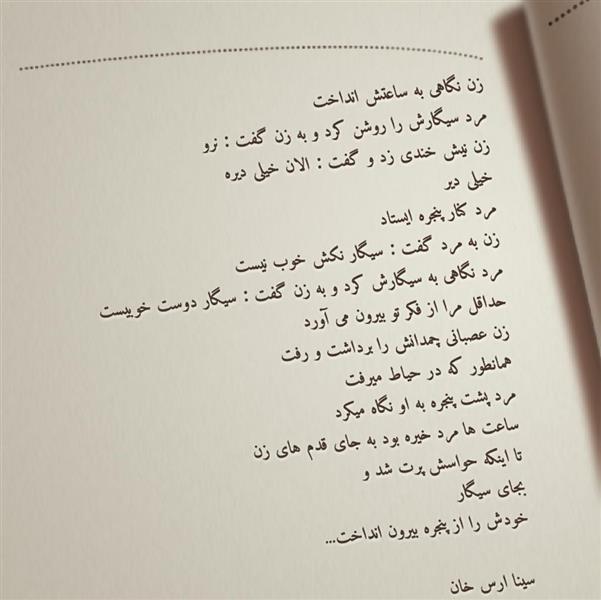 زن نگاهی به ساعتش انداخت
مرد سیگارش را روشن کرد و به زن گفت : نرو
زن نیش خندی زد و گفت : الان خیلی دیره
خیلی دیر
مرد کنار پنجره ایستاد
زن به مرد گفت : سیگار نکش خوب نیست
مرد نگاهی به سیگارش کرد و به زن گفت : سیگار دوست خوبیست
حداقل مرا از فکر تو بیرون می آورد
زن عصبانی چمدانش را برداشت و رفت
همانطور که در حیاط میرفت
مرد پشت پنجره به او نگاه میکرد
ساعت ها مرد خیره بود به جای قدم های زن
تا اینکه حواسش پرت شد و
بجای سیگار
خودش را از پنجره بیرون انداخت...
سینا ارس خان